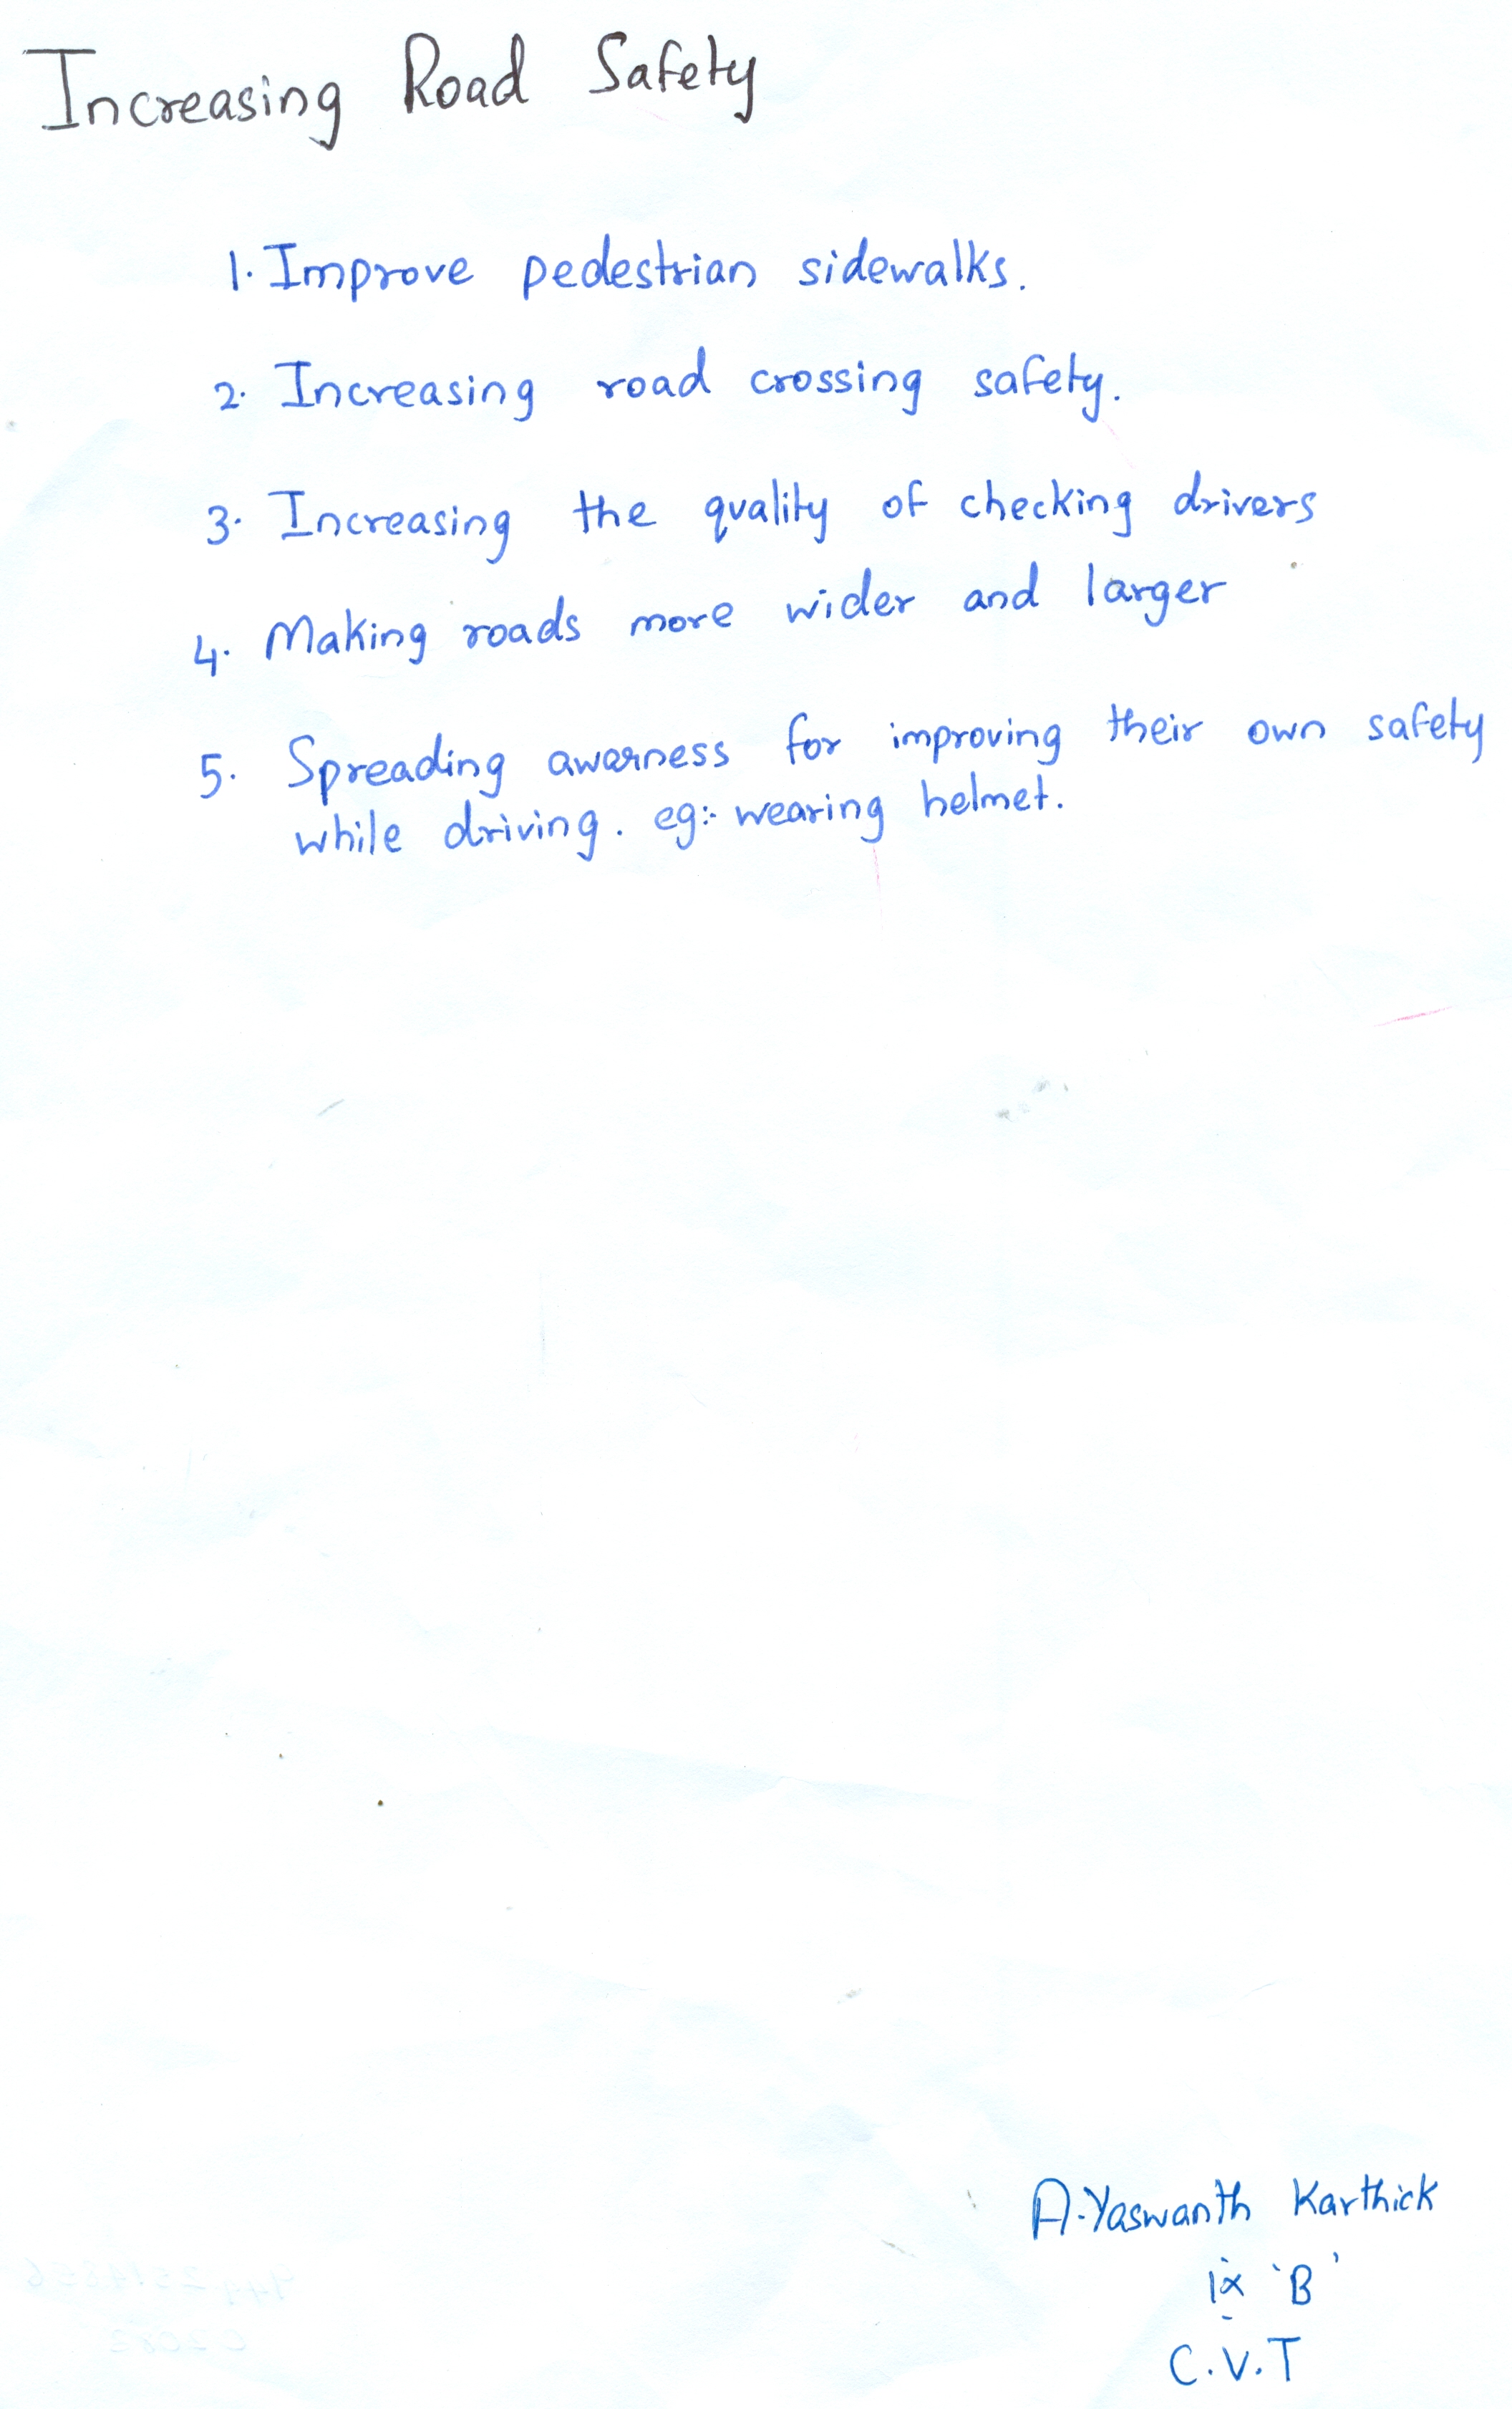 Increasing Road Safety
1. Improve pedestrian sidewalks.
2. Increasing road crossing safety.
3. Increasing the quality of checking drivers
4. Making roads more wider and larger
5. Spreading awarness for improving their own safety
while driving. eg:- wearing helmet.
A. Yaswanth Karthick
ix 'B'
C.V.T